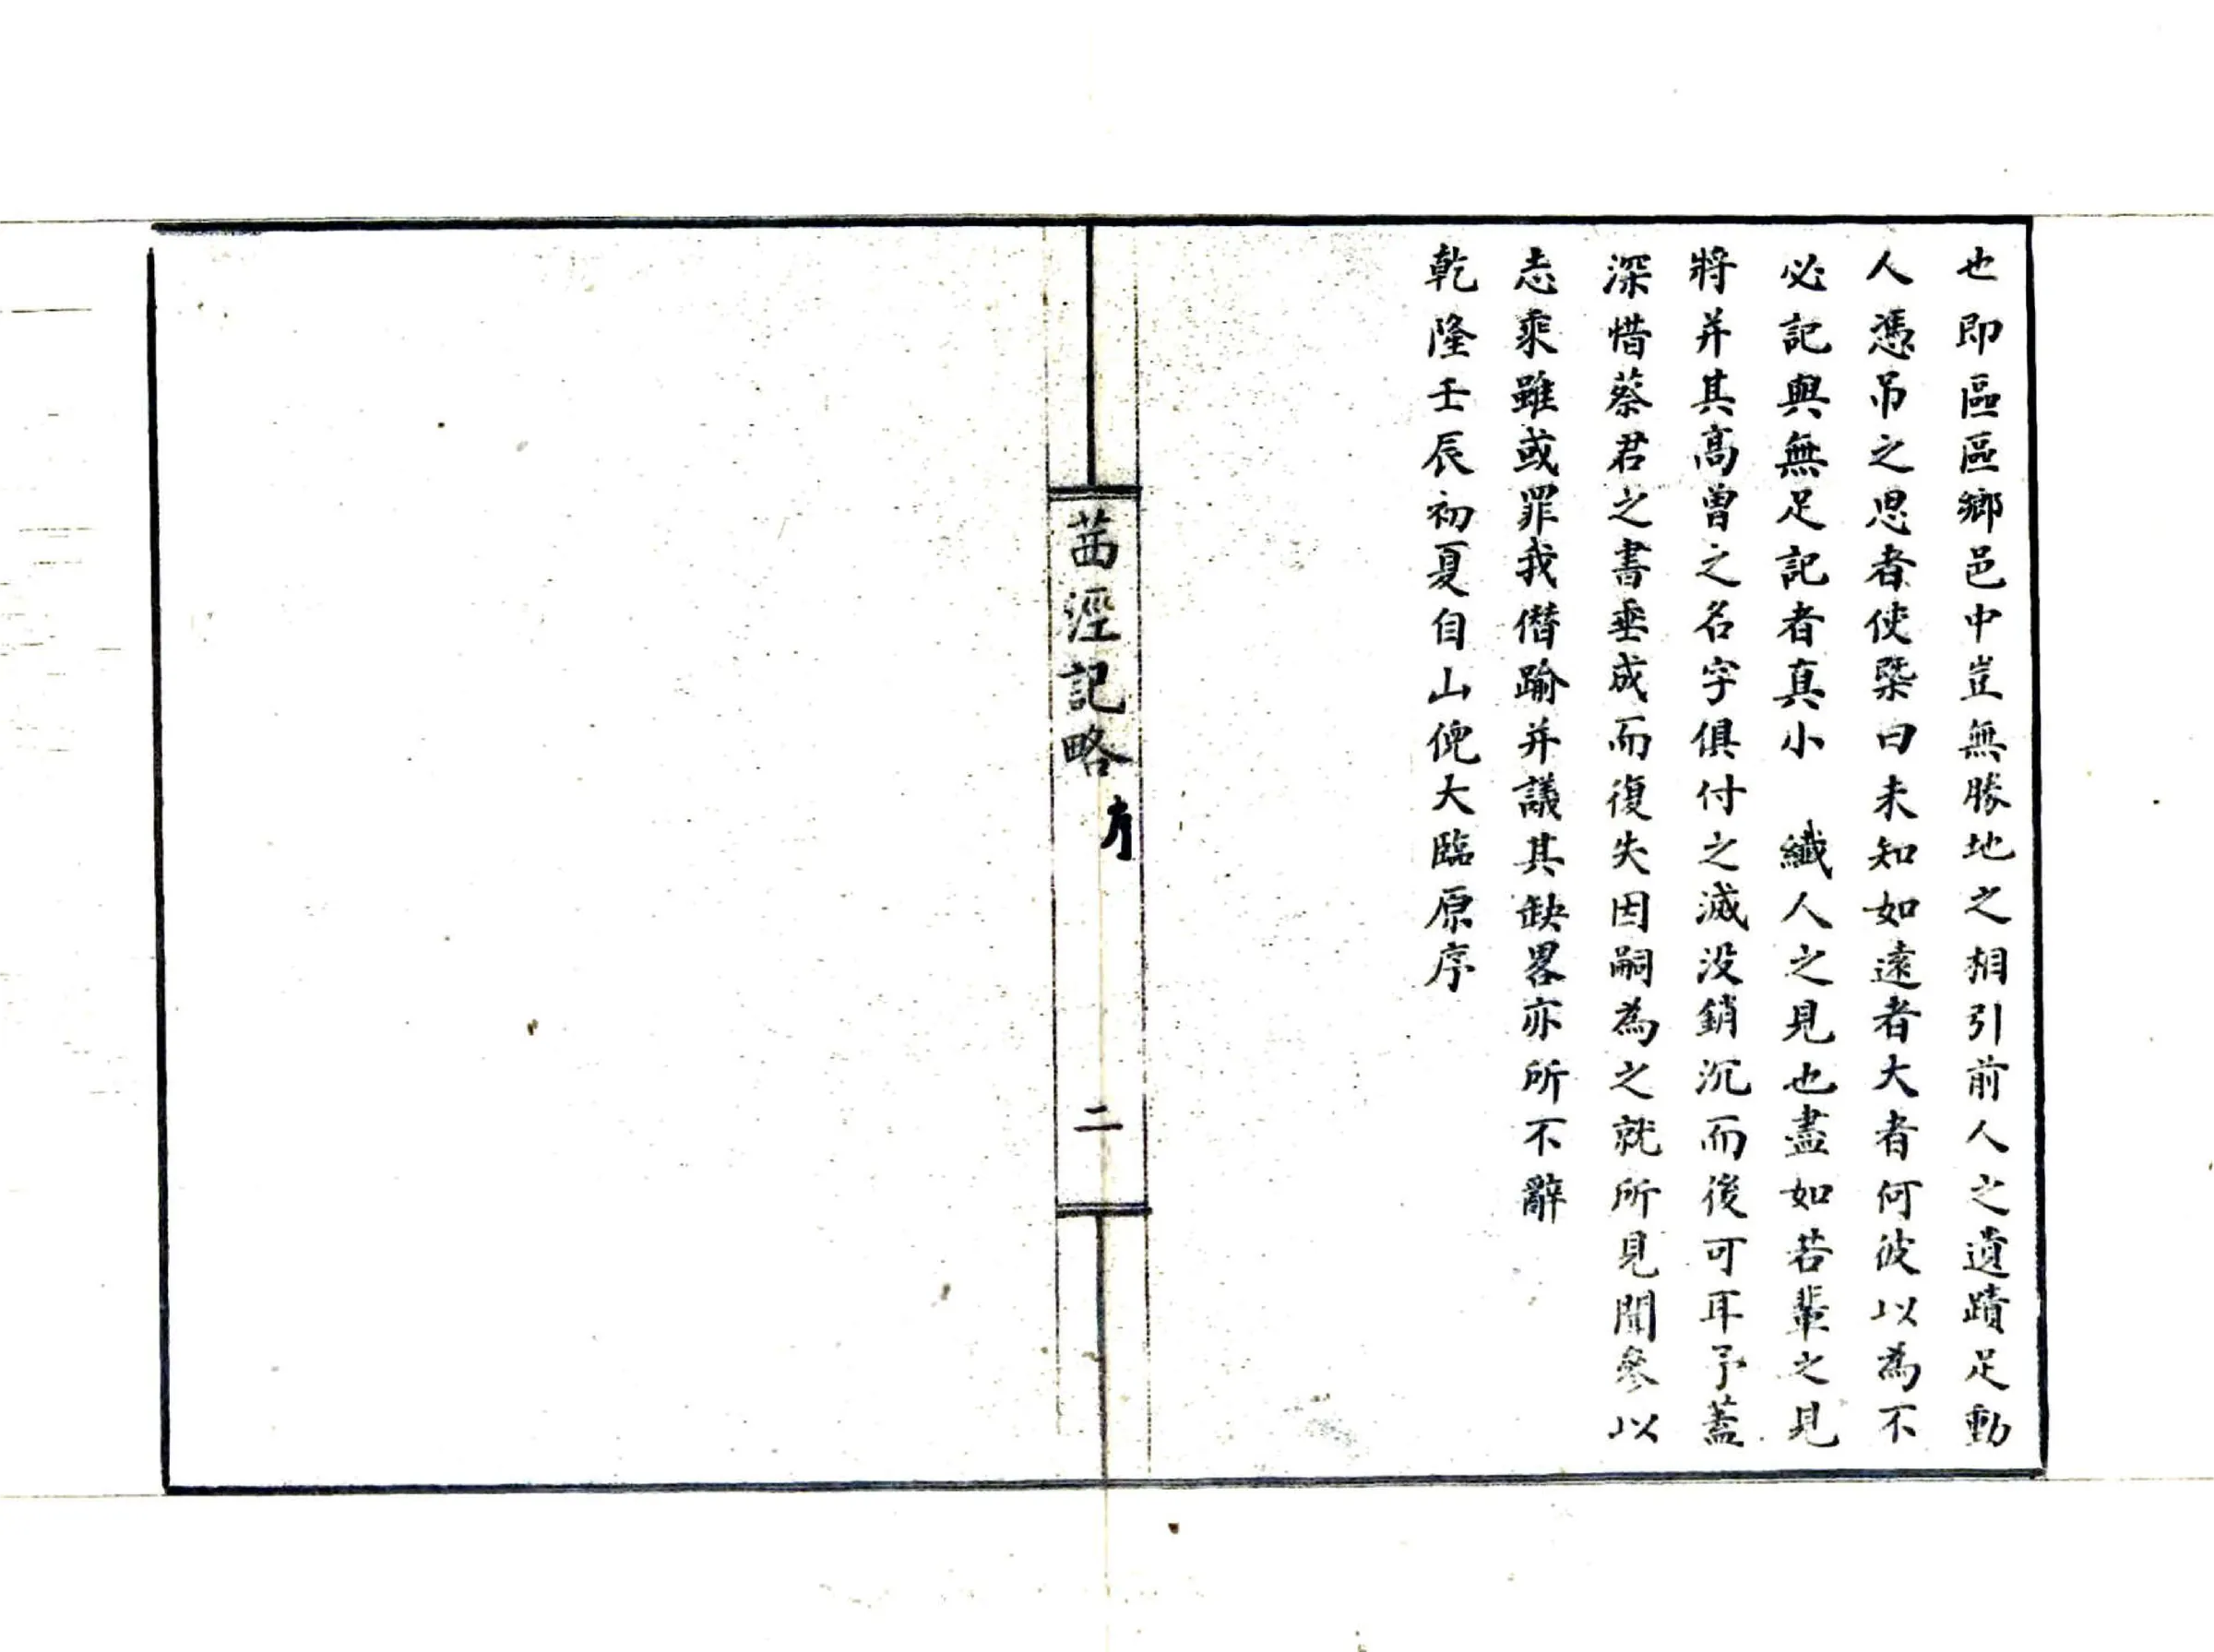 也即區區鄉邑中豈無勝地之相引前人之遺蹟足動
人憑吊之思者使槩曰未知如遠者大者何彼以為不
必記與無足記者真小 纖人之見也盡如若輩之見
將并其高曾之名字俱付之滅没銷沉而後可耳予蓋
深惜蔡君之書垂成而復失因嗣為之就所見聞參以
志乘雖或罪我僭踰并議其缺畧亦所不辭
乾隆壬辰初夏自山倪大臨原序
茜涇記略 序 二